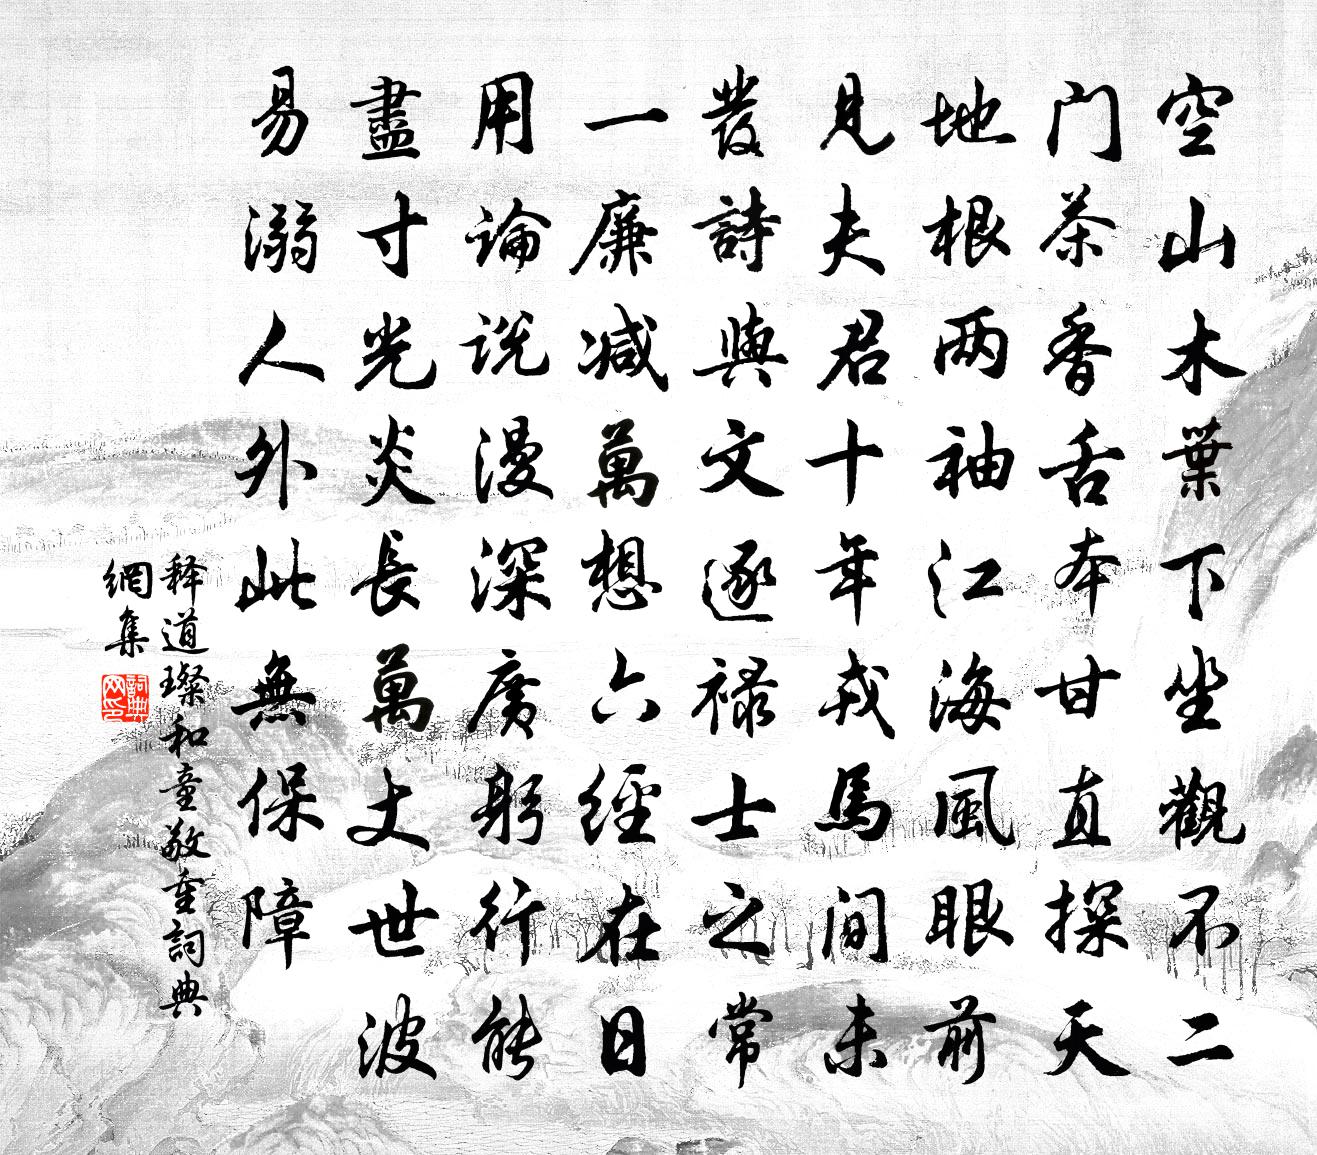 空山木葉下坐觀不二
门茶香舌本甘直探天
地根两袖江海風眼前
見夫君十年戎馬间未
發詩與文逐禄士之常
一廉减萬想六經在日
用論说漫深廣躬行能
盡寸光炎長萬丈世波
易溺人外此無保障
释道璨和童敬重詞典
網集
詞典网印